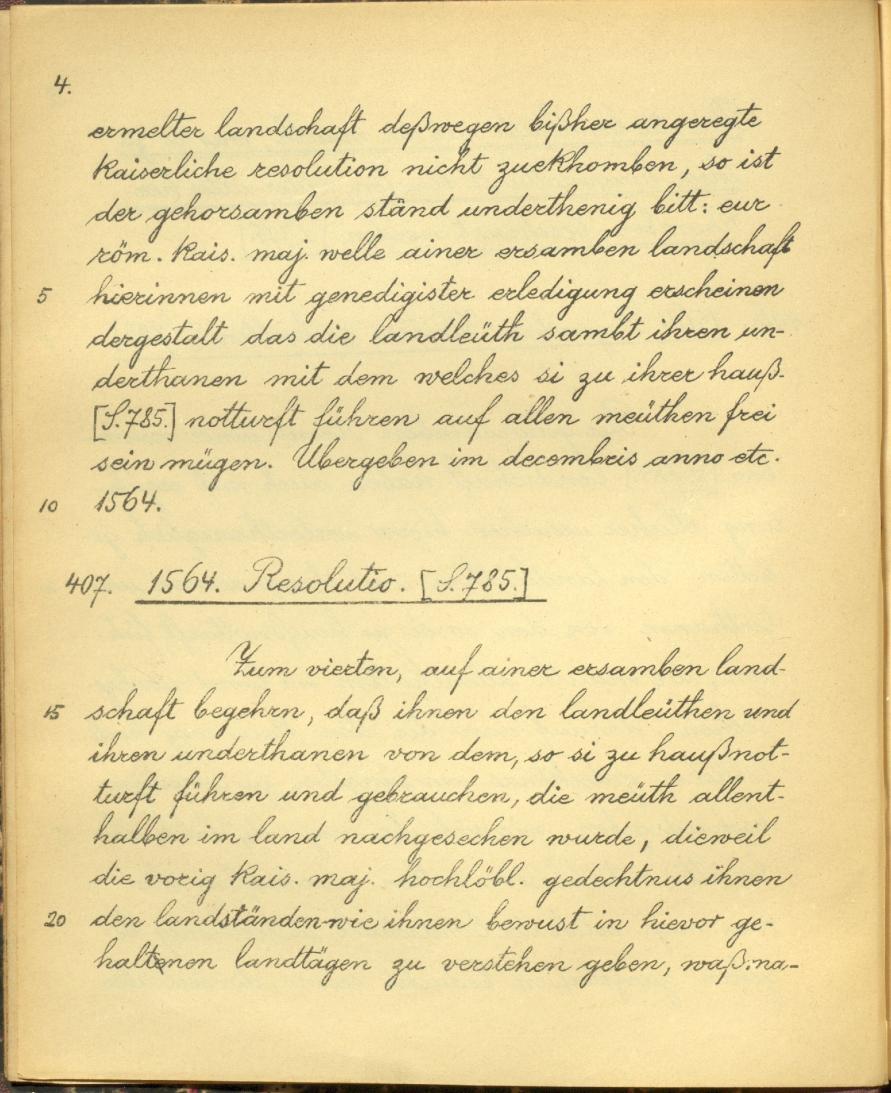 4.
ermelter landschaft deßwegen bißher angeregte
kaiserliche resolution nicht zuekhomben, so ist
der gehorsamben ständ underthenig bitt: eur
röm. kais. maj. welle ainer ersamben landschaft
5 hierinnen mit genedigister erledigung erscheinen
dergestalt das die landleüth sambt ihren un-
derthanen mit dem welches si zu ihrer hauß-
[S.785.] notturft führen auf allen meüthen frei
sein mügen. Übergeben im decembris anno etc.
10 1564.
407. 1564. Resolutio. [S.785.]
Zum vierten, auf ainer ersamben land-
15 schaft begehrn, daß ihnen den landleüthen und
ihren underthanen von dem, so si zu haußnot-
turft führen und gebrauchen, die meüth allent-
halben im land nachgesechen wurde, dieweil
die vorig kais. maj. hochlöbl. gedechtnus ihnen
20 den landständen-wie ihnen bewust in hievor ge-
haltenen landtägen zu verstehen geben, waß:na-